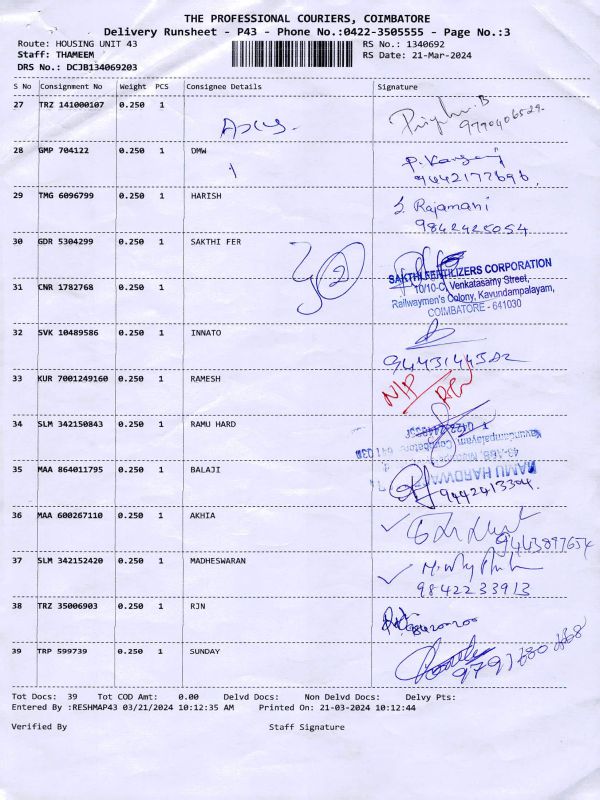 THE PROFESSIONAL COURIERS, COIMBATORE
Delivery Runsheet - P43 - Phone No.:0422-3505555 - Page No.:3
Route: HOUSING UNIT 43 RS No.: 1340692
Staff: THAMEEM RS Date: 21-Mar-2024
DRS No.: DCJB134069203
S No Consignment No Weight PCS Consignee Details Signature
27 TRZ 141000107 0.250 1
9790406529
28 GMP 704122 0.250 1 DMW
9442177696
29 TMG 6096799 0.250 1 HARISH S. Rajamani
9842425054
30 GDR 5304299 0.250 1 SAKTHI FER
2
SAKTHI FERTILIZERS CORPORATION
10/10-C, Venkatasamy Street,
Railwaymen's Colony, Kavundampalayam,
COIMBATORE - 641030
31 CNR 1782768 0.250 1
32 SVK 10489586 0.250 1 INNATO
33 KUR 7001249160 0.250 1 RAMESH
34 SLM 342150843 0.250 1 RAMU HARD
Kavundampalayam, Coimbatore
RAMU HARDWA
35 MAA 864011795 0.250 1 BALAJI
9442413304
36 MAA 600267110 0.250 1 AKHIA
9443897654
37 SLM 342152420 0.250 1 MADHESWARAN
9842233913
38 TRZ 35006903 0.250 1 RJN
39 TRP 599739 0.250 1 SUNDAY
9791680868
Tot Docs: 39 Tot COD Amt: 0.00 Delvd Docs: Non Delvd Docs: Delvy Pts:
Entered By :RESHMAP43 03/21/2024 10:12:35 AM Printed On: 21-03-2024 10:12:44
Verified By Staff Signature